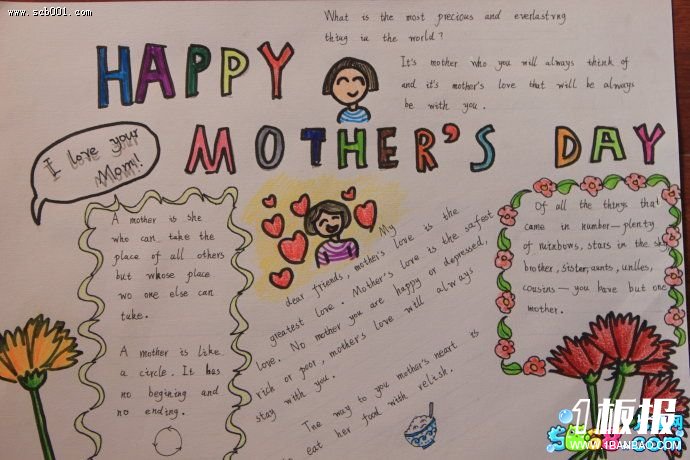 www.scb001.com
What is the most precious and everlastvng
thing in the world?
It's mother who you will always think of
and it's mother's love that will be always
be with you.
HAPPY
MOTHER'S DAY
I love your
Mom!
A mother is she
who can take the
place of all others
but whose place
wo one else can
take.
A mother is like
a circle. It has
no begining and
no ending.
My
dear friends, mother's love is the
greatest love. Mother's love is the safest
love. No mother you are happy or depressed,
rich or poor, mother's love will always
stay with you.
Tne way to you mother's heart is
eat her food with relish.
Of all the things that
came in number—plenty
of rainbows, stars in the sky
brother, sister, aunts, unlles,
cousins—you have but one
mother.
1板报
WWW.1BANBAO.COM